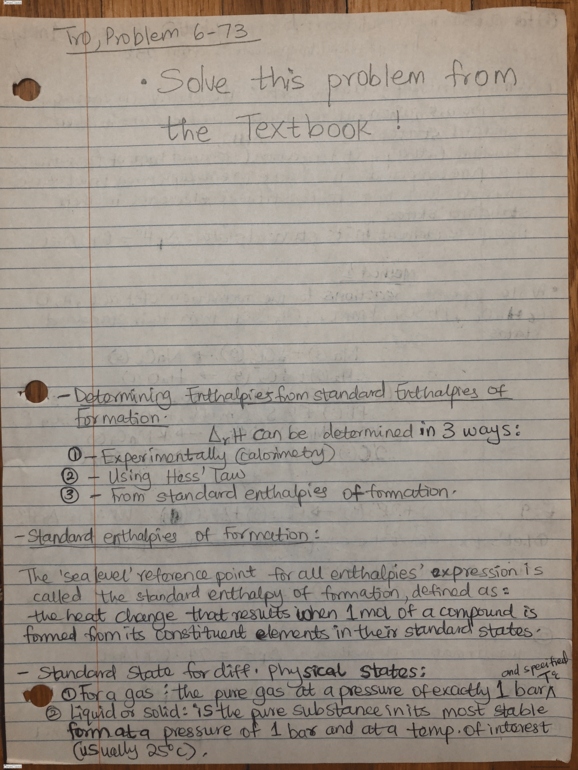 Tro, Problem 6-73
• Solve this problem from
the Textbook !
- Determining Enthalpies from standard Enthalpies of
Formation.
ΔrH can be determined in 3 ways:
① - Experimentally (calorimetry)
② - Using Hess' Law
③ - From standard enthalpies of formation.
- Standard enthalpies of formation:
The 'sea level' reference point for all enthalpies' expression is
called the standard enthalpy of formation, defined as:
the heat change that results when 1 mol of a compound is
formed from its constituent elements in their standard states.
- Standard State for diff. physical states:
and specified
① For a gas: the pure gas at a pressure of exactly 1 bar^
② Liquid or solid: is the pure substance in its most stable
form at a pressure of 1 bar and at a temp. of interest
(usually 25°C).